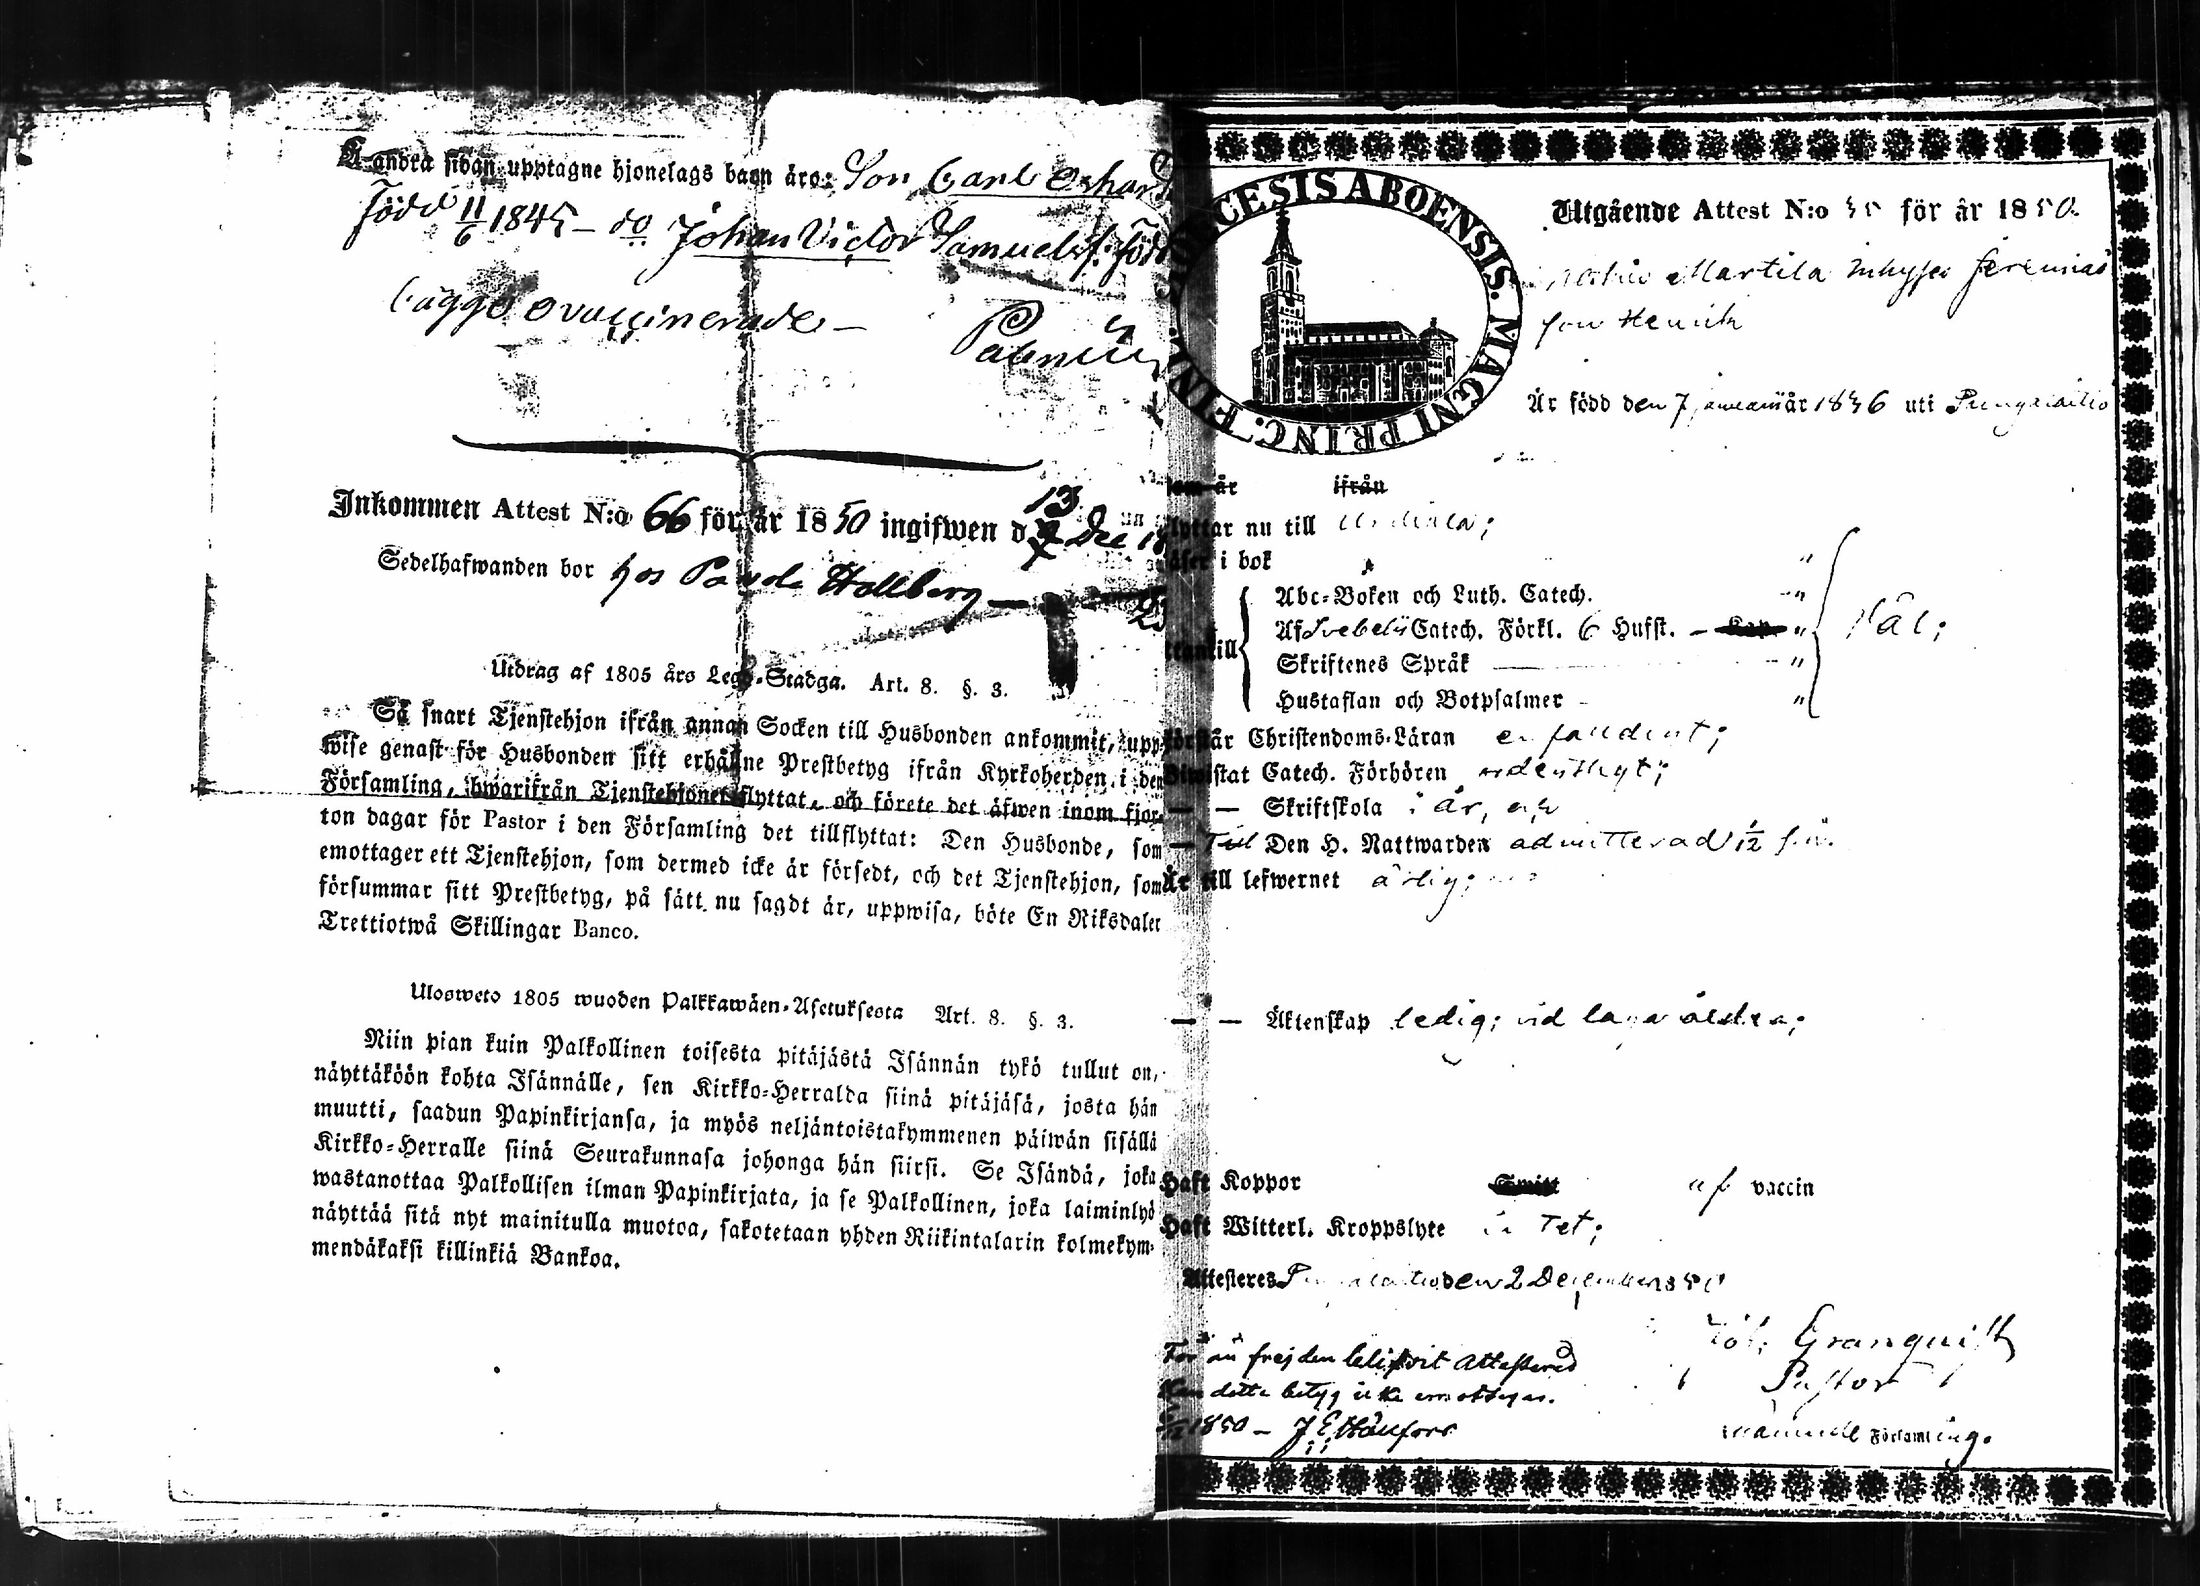 å andra sidan upptagne hjonelags barn äro: Son Carl Oskar
Född 11/6 1845 – do Johan Victor Samuelsf. Född
bägge ovaccinerade –
Inkommen Attest N:o 66 för år 1850 ingifwen d 13 Dec 18
Sedelhafwanden bor hos Hallberg –
Utdrag af 1805 års Lego-Stadga. Art. 8. §. 3.
Så snart Tjenstehjon ifrån annan Socken till Husbonden ankommit, upp-
wise genast för Husbonden sitt erhållne Prestbetyg ifrån Kyrkoherden i den
Församling, hwarifrån Tjenstehjonet flyttat, och förete det äfwen inom fjor-
ton dagar för Pastor i den Församling det tillflyttat: Den Husbonde, som
emottager ett Tjenstehjon, som dermed icke är försedt, och det Tjenstehjon, som
försummar sitt Prestbetyg, på sätt nu sagdt är, uppwisa, böte En Riksdaler
Trettiotwå Skillingar Banco.
Ulosweto 1805 wuoden Palkkawäen-Asetuksesta Art. 8. §. 3.
Niin pian kuin Palkollinen toisesta pitäjästä Isännän tykö tullut on,
näyttäköön kohta Isännälle, sen Kirkko-Herralda siinä pitäjäsä, josta hän
muutti, saadun Papinkirjansa, ja myös neljäntoistakymmenen päiwän sisällä
Kirkko-Herralle siinä Seurakunnasa johonga hän siirsi. Se Isändä, joka
wastanottaa Palkollisen ilman Papinkirjata, ja se Palkollinen, joka laiminlyö
näyttää sitä nyt mainitulla muotoa, sakotetaan yhden Riikintalarin kolmekym-
mendäkaksi killinkiä Bankoa.
DIOECESIS ABOENSIS. MAGNI PRINC. FINL.
Utgående Attest N:o för år 1850.
Martila Inhyses Jeremias
son Henrik
Är född den 7 januarii år 1836 uti Pungalaitio
ifrån
flyttar nu till
läser i bok
Abc-Boken och Luth. Catech. "
Af Svebelii Catech. Förkl. 6 Hufst. – Kap. "
Skriftenes Språk – "
Hustaflan och Botpsalmer – "
utantill
förstår Christendoms-Läran
Biwistat Catech. Förhören ordentligt;
— — Skriftskola i år,
— Till Den H. Nattwarden admitterad 1/12
Är till lefwernet ärlig;
— — Äktenskap ledig; vid laga ålder;
Haft Koppor af vaccin
Haft Witterl. Kroppslyte
Attesteres den 2 December 1850
Granquist
Pastor
Församling.
För än frejden blifvit attesterad
kan dette betyg icke emottagas.
1850 –